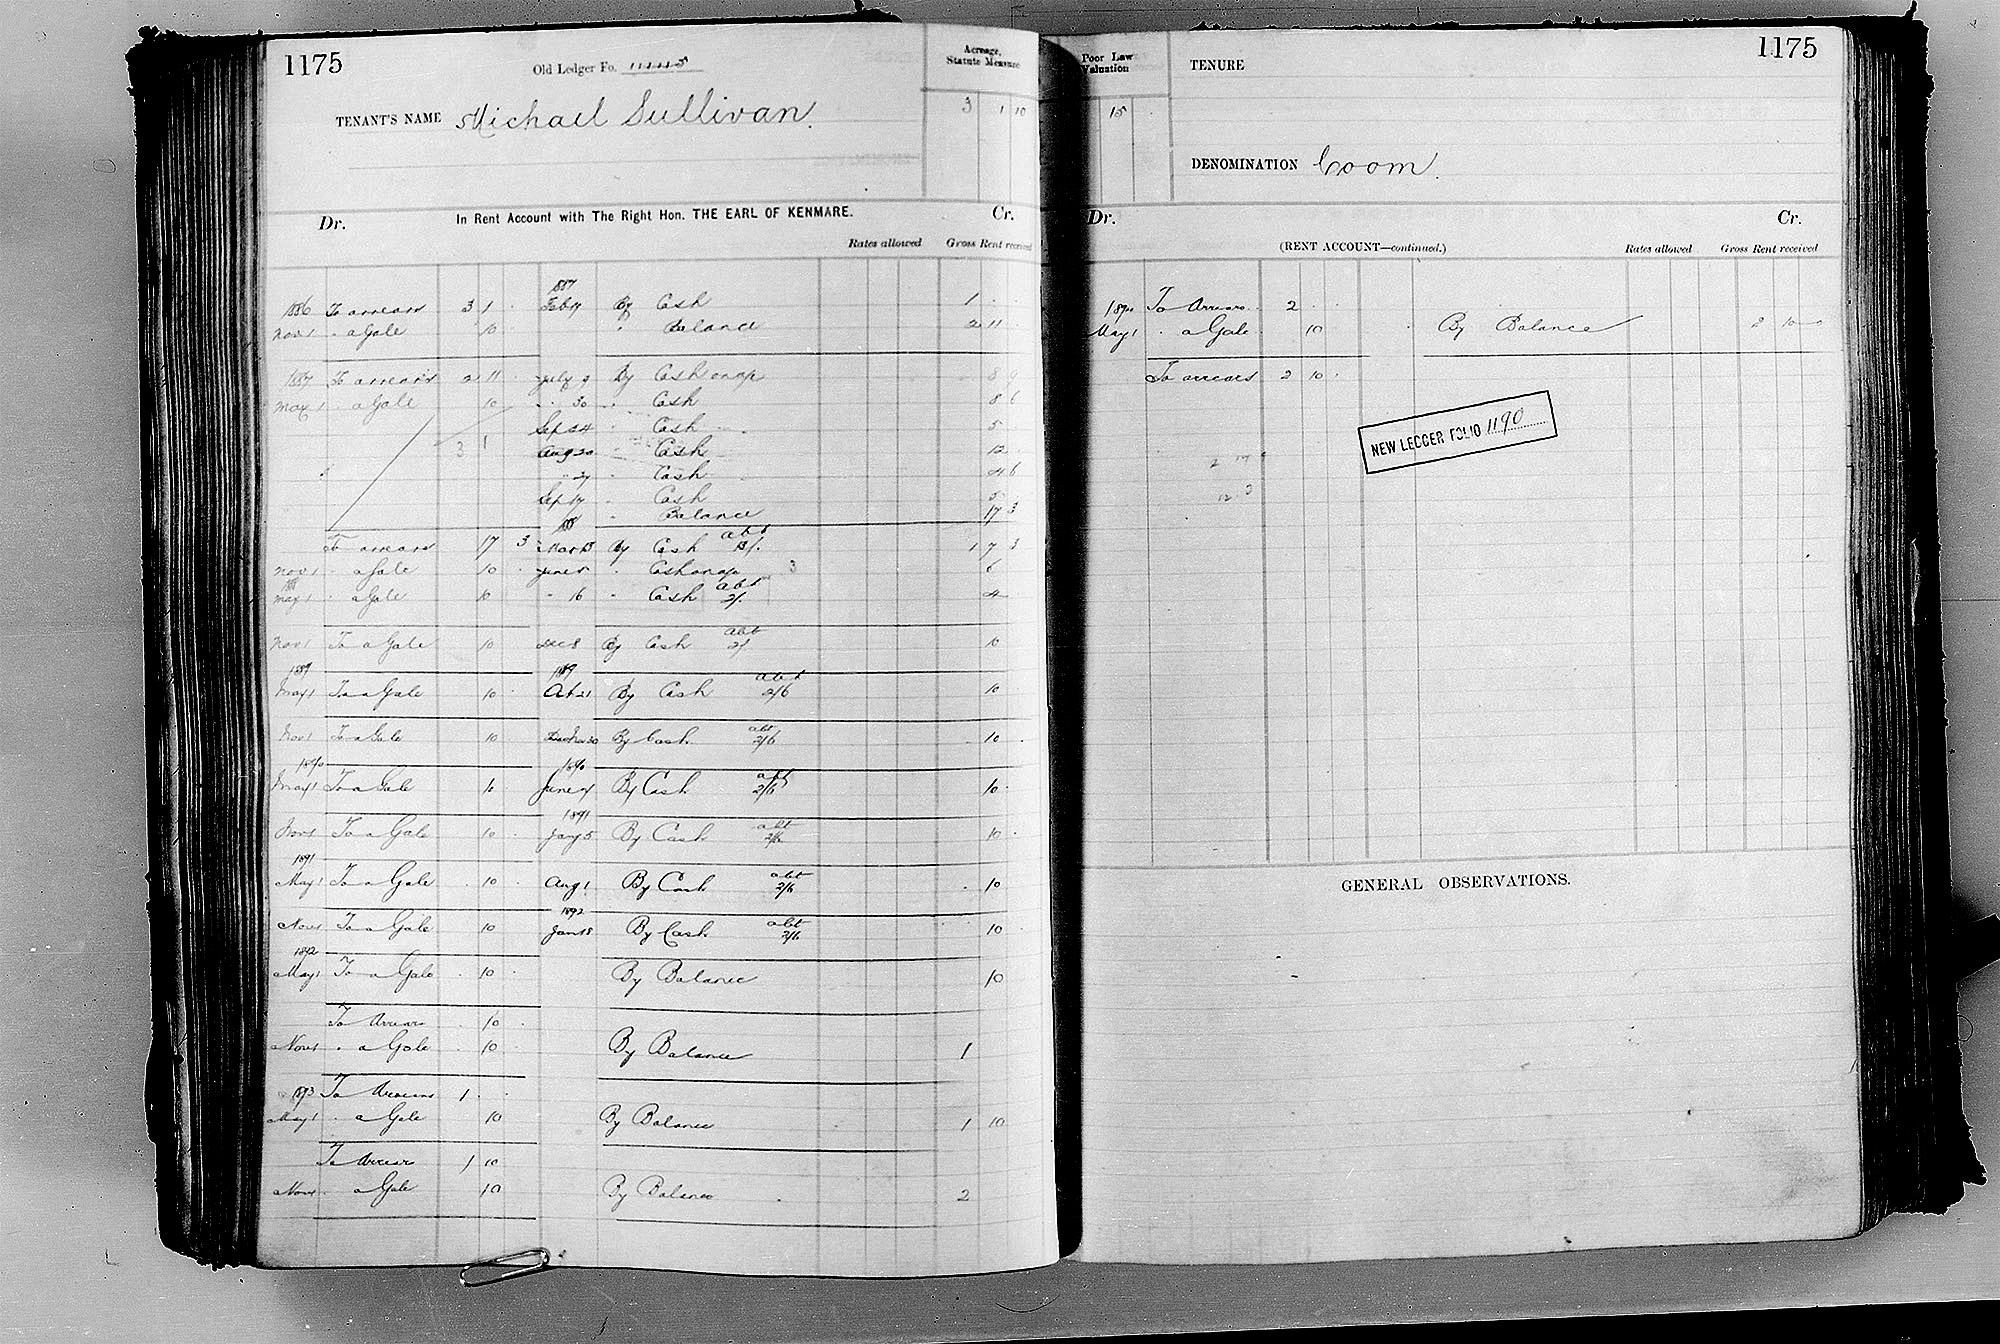 1175
Old Ledger Fo.
Acreage, Statute Measure
TENANT'S NAME Michael Sullivan
3 1 10
Dr. In Rent Account with The Right Hon. THE EARL OF KENMARE. Cr.
Rates allowed Gross Rent received
1887
1886 To arrears 3 1 . Feb 17 By Cash 1 . .
Nov 1 " a Gale 10 " Balance 2 11
1887 To arrears 2 11 . July 9 By Cash on a/c 8 9
May 1 " a Gale 10 " 30 " Cash 8 6
Sep 24 " Cash 5
3 1 Aug 20 " Cash 12
" 27 " Cash 4 6
Sep 17 " Cash 5
" Balance 17 3
1888
To arrears 17 3 Mar 15 By Cash abt 1 7 3
Nov 1 " a Gale 10 . June 5 " Cash on a/c 3 6
1888
May 1 " a Gale 10 " 16 " Cash abt 2/. 4
Nov 1 To a Gale 10 Dec 8 By Cash abt 2/ 10
1889 1889
May 1 To a Gale 10 . Oct 21 By Cash abt 2/6 10
Nov 1 To a Gale 10 30 By Cash abt 2/6 10 .
1890 1890
May 1 To a Gale 10 June By Cash abt 2/6 10 .
1891
Nov 1 To a Gale 10 . Jany 5 By Cash abt 2/6 10 .
1891
May 1 To a Gale . 10 . Aug 1 By Cash abt 2/6 . 10
1892
Nov 1 To a Gale 10 Jan 18 By Cash abt 2/6 10
1892
May 1 To a Gale . 10 . By Balance 10
To Arrears . 10 .
Nov 1 " a Gale . 10 . By Balance 1
1893 To Arrears 1 . .
May 1 " a Gale 10 By Balance 1 10
To Arrears 1 10
Nov 1 " a Gale 10 By Balance 2
1175
Poor Law Valuation
TENURE
15
DENOMINATION Coom.
Dr. Cr.
(RENT ACCOUNT—continued.) Rates allowed Gross Rent received
1894 To Arrears 2 .
May 1 " a Gale 10 By Balance 2 10
To arrears 2 10 .
NEW LEDGER FOLIO 1190
12 3
GENERAL OBSERVATIONS.